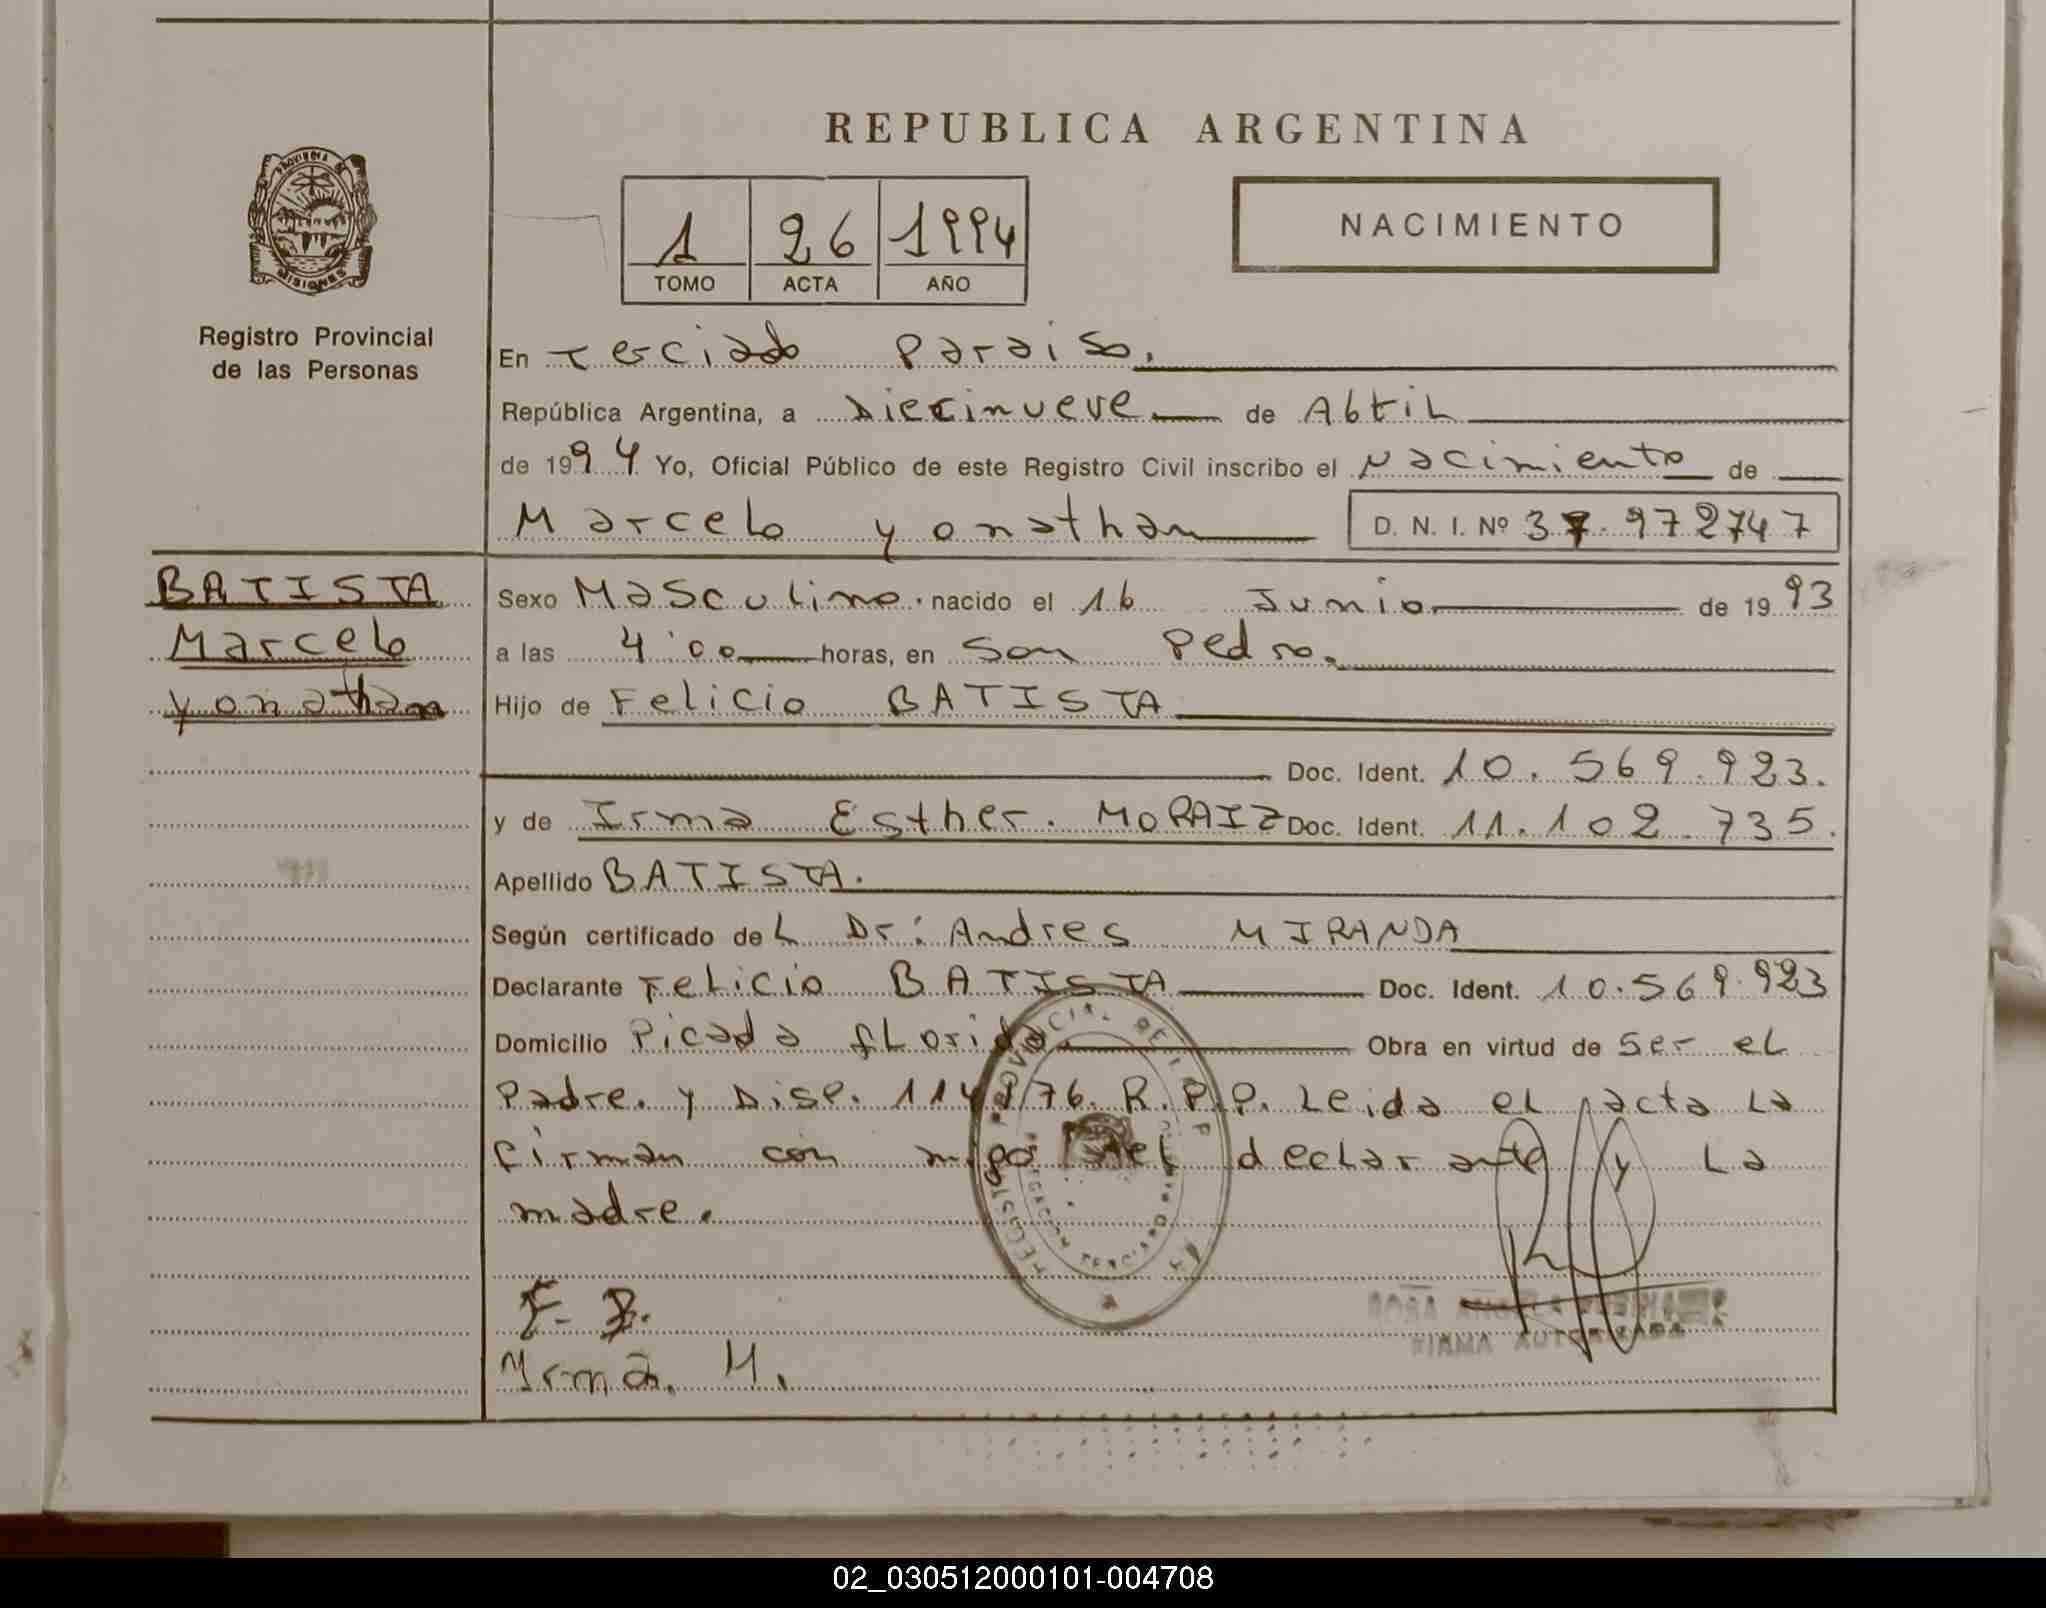 REPUBLICA ARGENTINA
PROVINCIA DE
MISIONES
1 26 1994
TOMO ACTA AÑO
NACIMIENTO
Registro Provincial
de las Personas
En Terciado Paraiso.
República Argentina, a Diecinueve de Abril
de 1994 Yo, Oficial Público de este Registro Civil inscribo el Nacimiento de
Marcelo Yonathan D. N. I. Nº 37.972747
BATISTA
Marcelo
Yonathan
Sexo Masculino. nacido el 16 Junio de 1993
a las 4'00 horas, en San Pedro.
Hijo de Felicio BATISTA
Doc. Ident. 10.569.923.
y de Irma Esther. MORAIZ Doc. Ident. 11.102.735.
Apellido BATISTA.
Según certificado del Dr: Andres MIRANDA
Declarante Felicio BATISTA Doc. Ident. 10.569.923
Domicilio Picada florida. Obra en virtud de Ser el
Padre. y Disp. 114/76. R.P.P. Leida el acta la
firman con migo el declarante y La
madre.
F. B.
Irma. M.
FIRMA AUTORIZADA
02_030512000101-004708